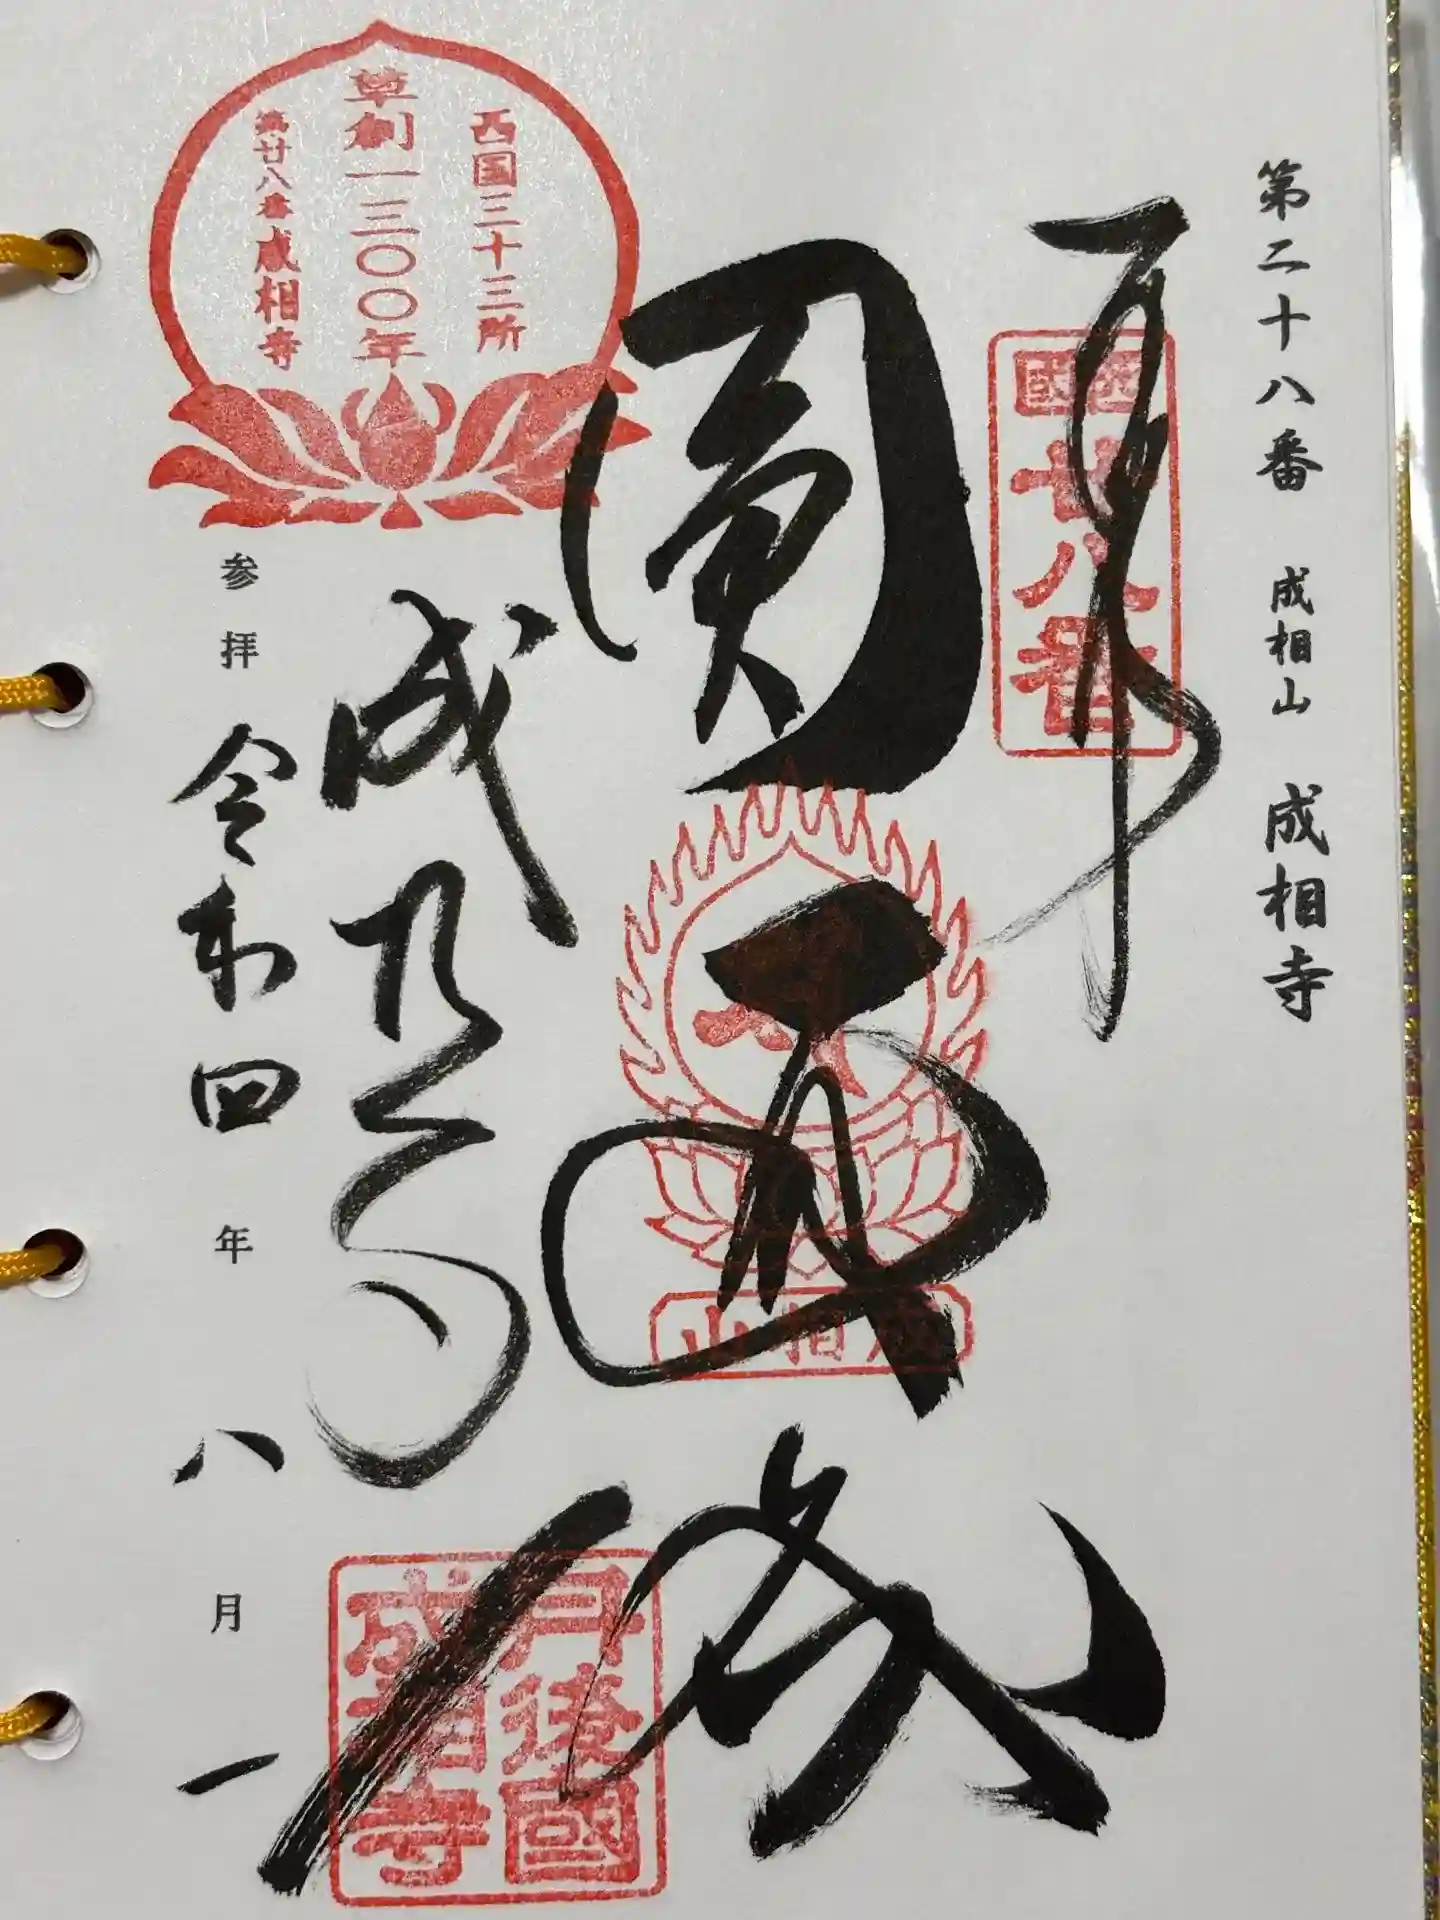 第二十八番 成相山 成相寺
奉拝
西國
廿八番
圓
成相山
成相寺
丹後國
成相寺
西国三十三所
草創一三〇〇年
第廿八番成相寺
参拝 令和四年 八月一